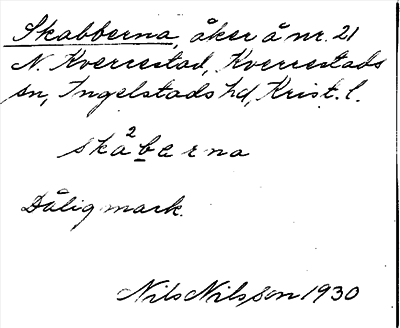 Skabberna, åker å nr. 21
N. Kverrestad, Kverrestads
sn, Ingelstads hd, Krist. l.
ska²berna
Dålig mark.
Nils Nilsson 1930